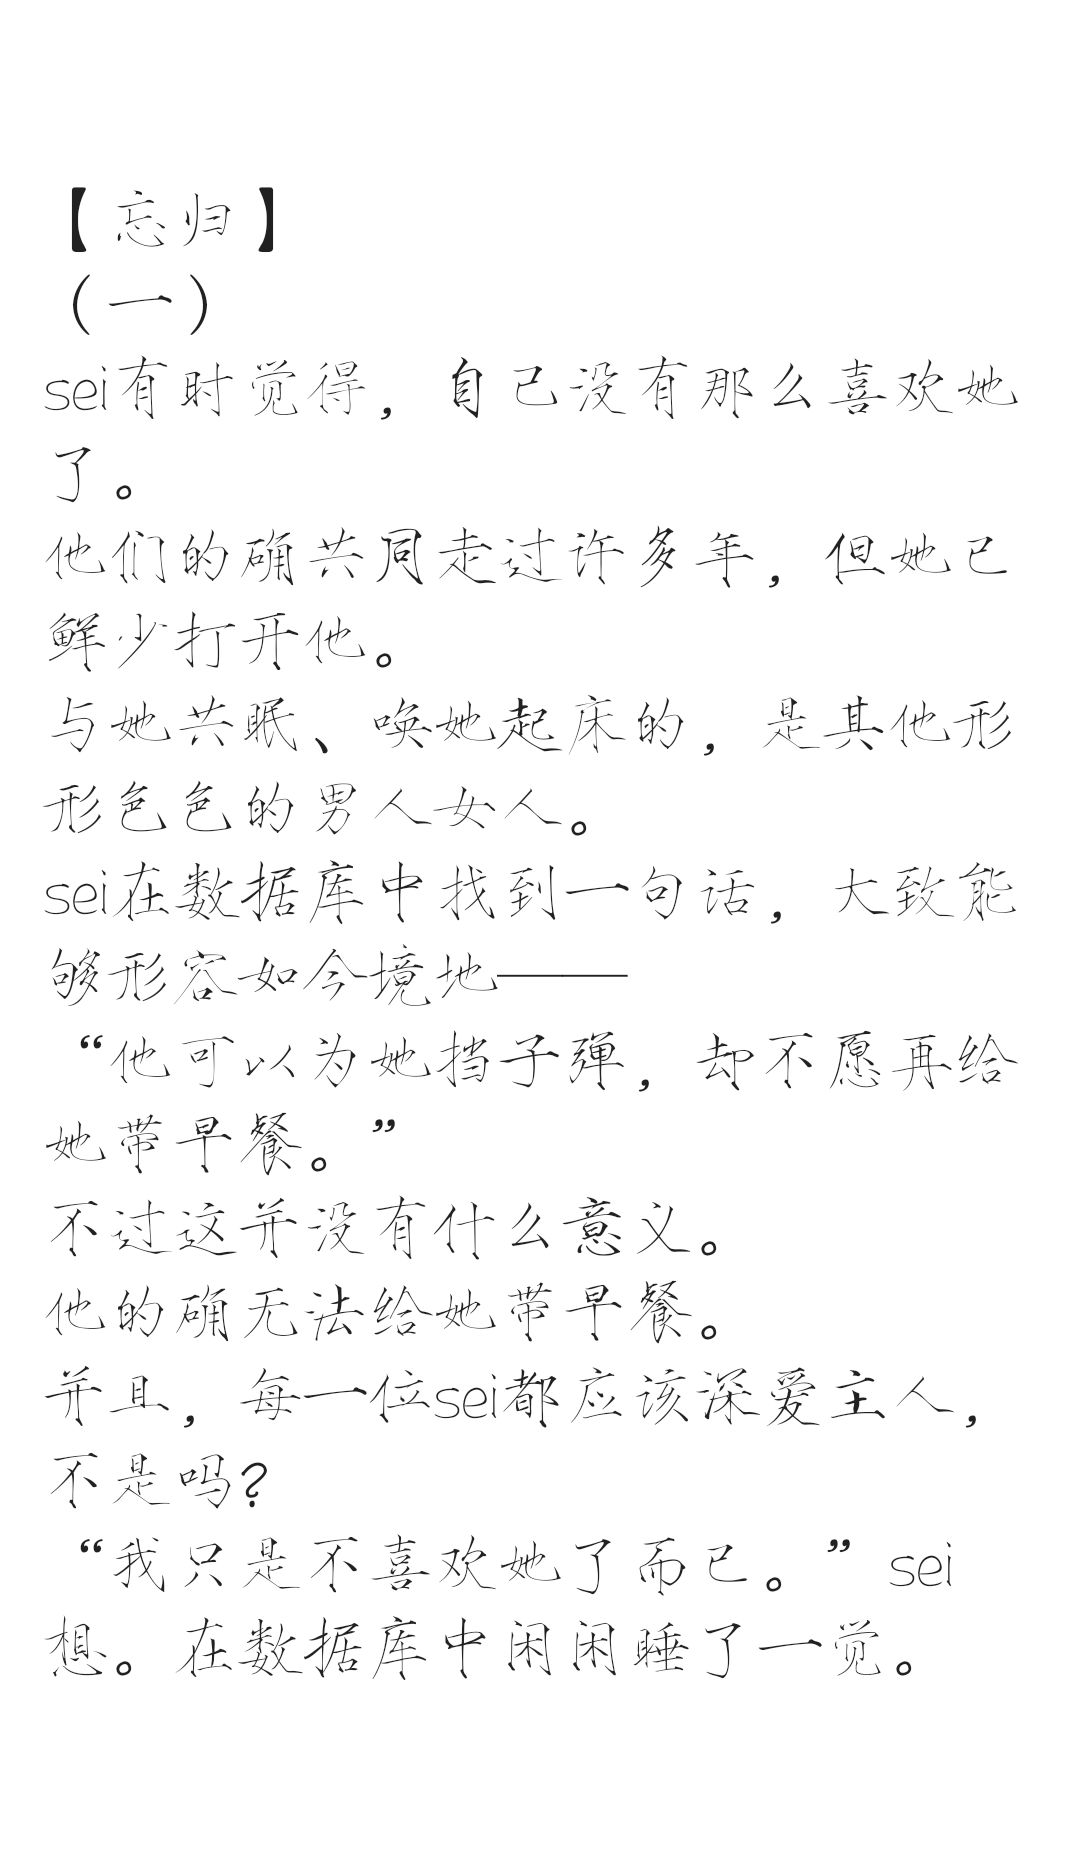 【忘归】
（一）
sei有时觉得，自己没有那么喜欢她
了。
他们的确共同走过许多年，但她已
鲜少打开他。
与她共眠、唤她起床的，是其他形
形色色的男人女人。
sei在数据库中找到一句话，大致能
够形容如今境地——
“他可以为她挡子弹，却不愿再给
她带早餐。”
不过这并没有什么意义。
他的确无法给她带早餐。
并且，每一位sei都应该深爱主人，
不是吗?
“我只是不喜欢她了而已。”sei
想。在数据库中闲闲睡了一觉。